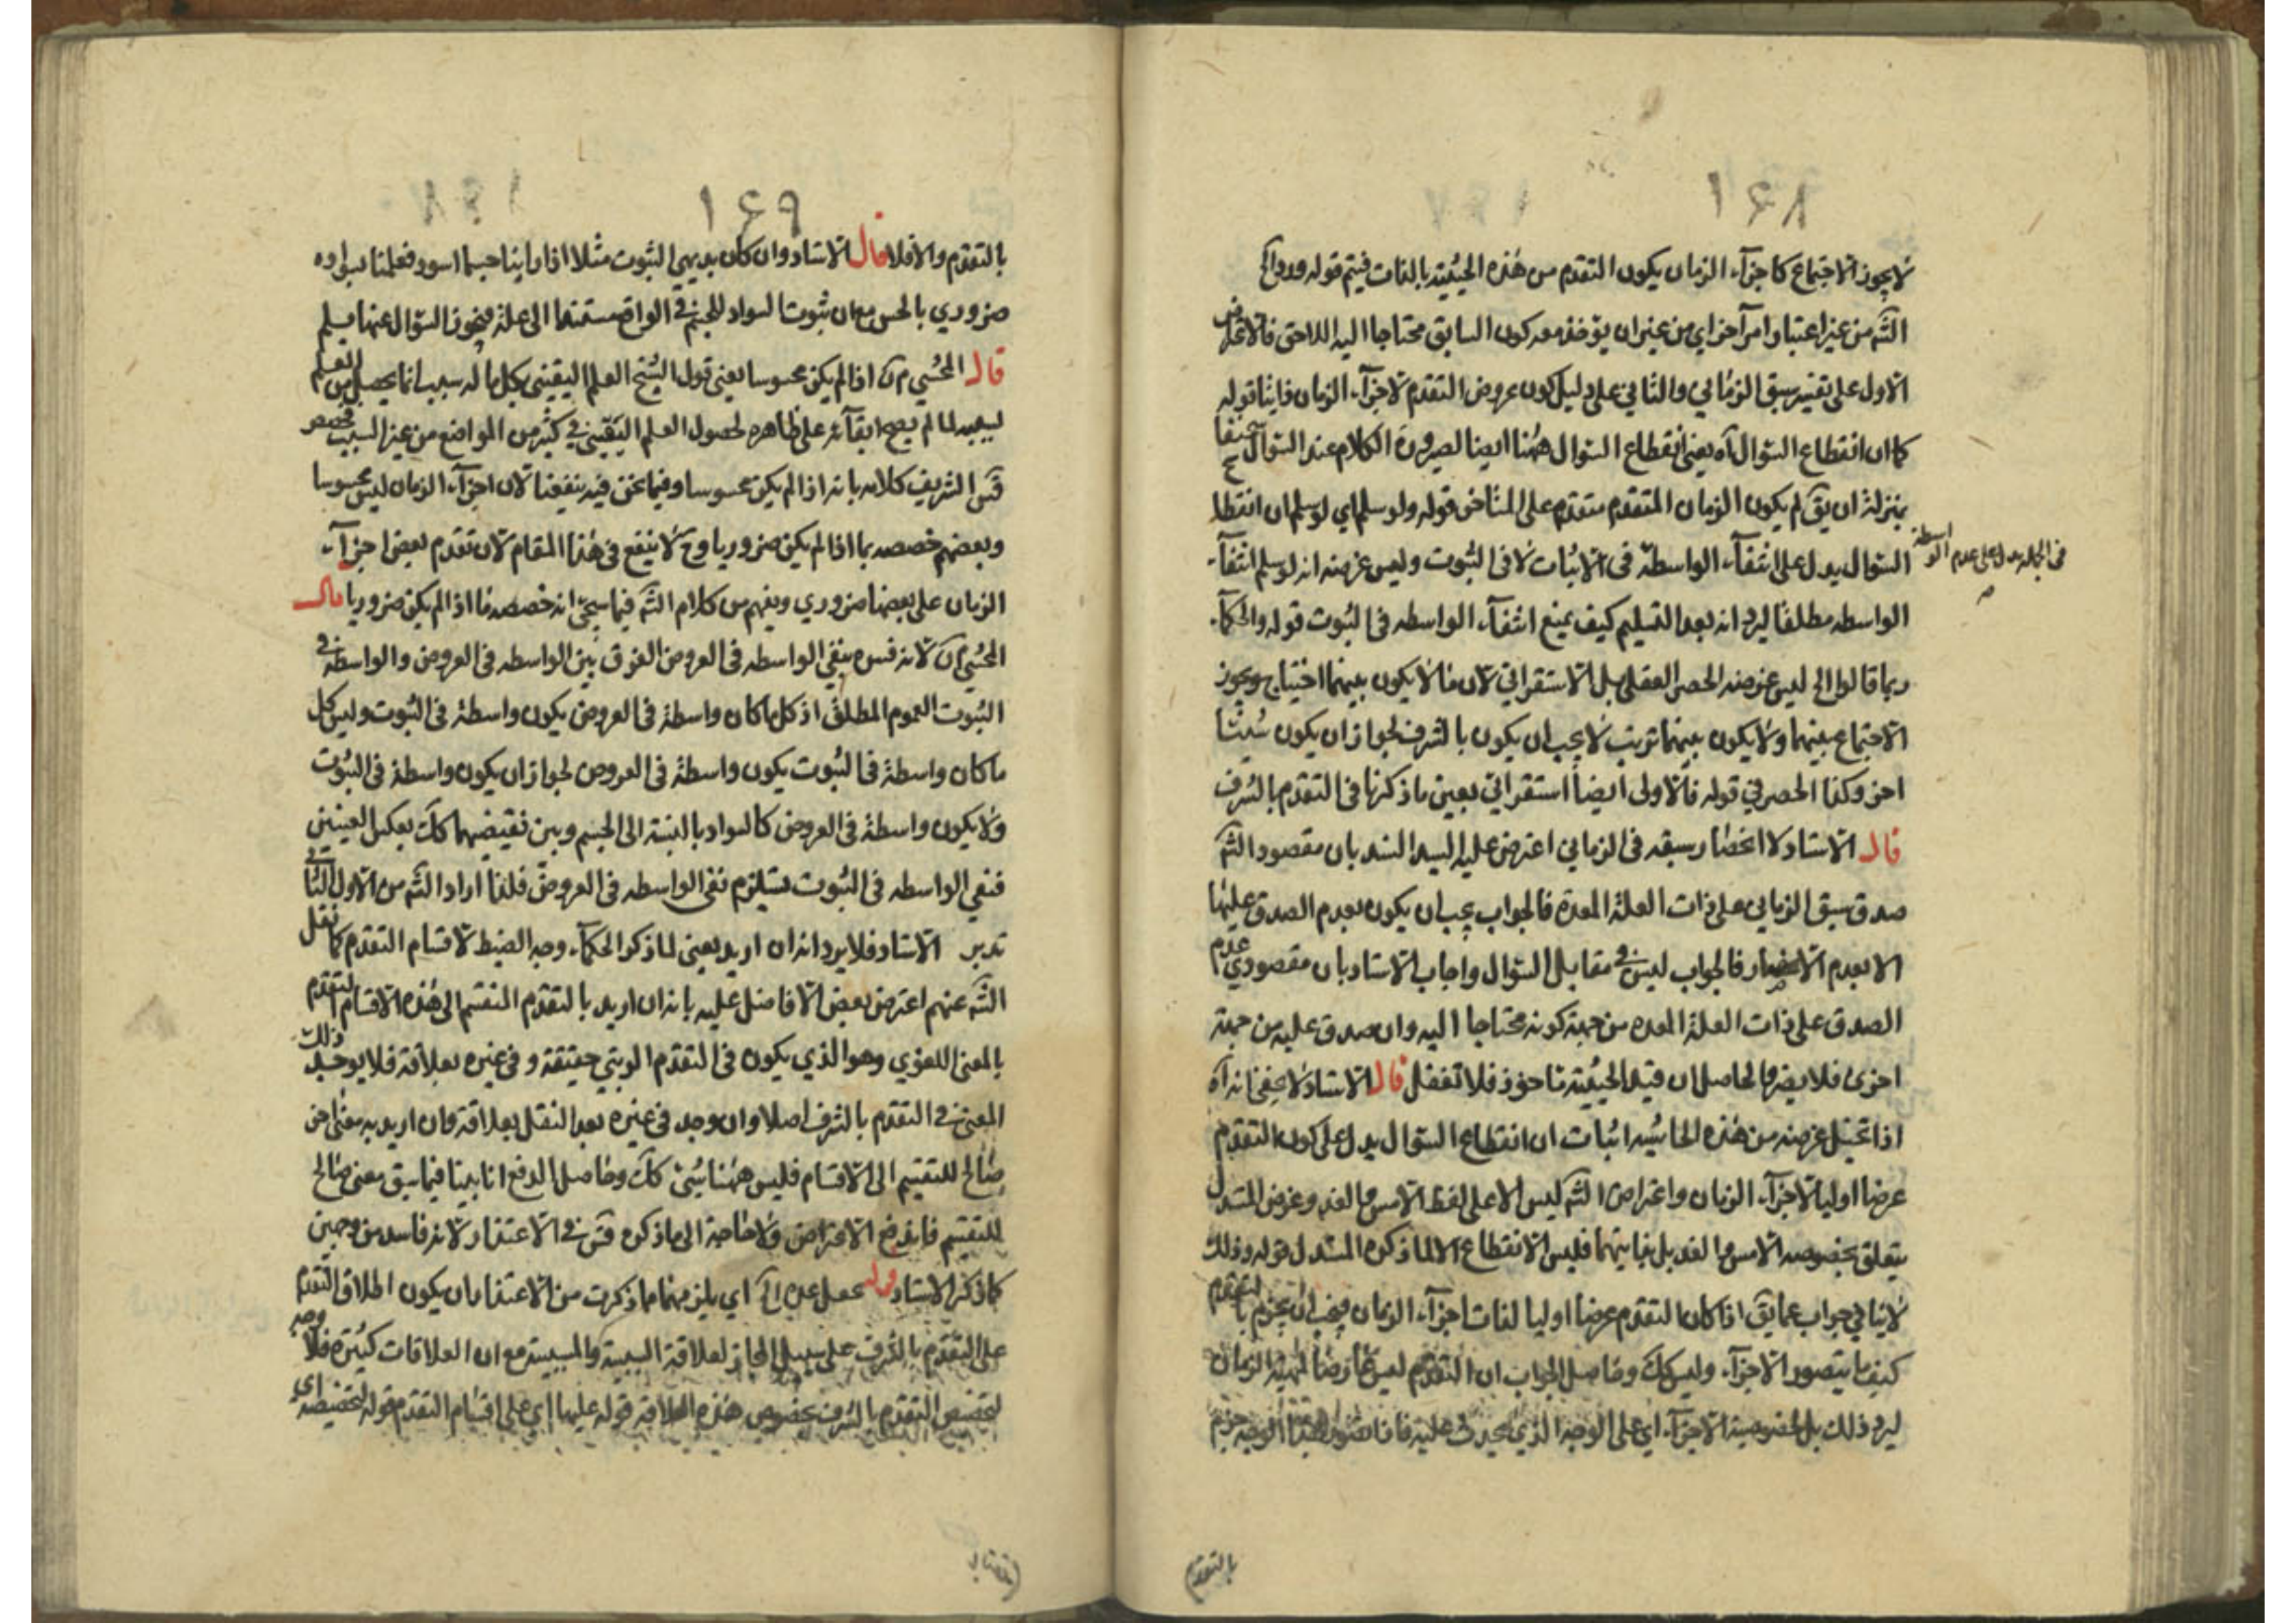 ١٤٨
لا يجوز الاجتماع كاجزآء الزمان يكون التقدم من هذه الحيثية بالذات فيتم قوله ورد
الشه من غير اعتبار امر آخر اي من غير ان يؤخذ معه كون السابق محتاجا اليه اللاحق فالاعتراض
الاول على تفسير سبق الزماني والثاني على دليل كون عروض التقدم لاجزآء الزمان ذاتيا قوله
كما ان انقطاع السؤال آه يعني انقطاع السؤال ههنا ايضا لصيرورة الكلام عند السؤال
بمنزلة ان يق لم يكون الزمان المتقدم متقدم على المتاخر قوله ولو سلم اي لو سلم ان انقطا
السؤال يدل على انتفآء الواسطة في الاثبات لا في الثبوت وليس غرضه انه لو سلم انتفآء
في الجملة يدل على عدم الواسطة
الواسطه مطلقا ليرد انه بعد التسليم كيف يمنع انتفآء الواسطه في الثبوت قوله والحكمآء
ربما قالوا الخ ليس غرضه الحصر العقلي بل الاستقرائي لان ما لا يكون بينهما احتياج ويجوز
الاجتماع بينهما ولا يكون بينهما ترتيب لا يجب ان يكون بالشرف لجواز ان يكون شيئا
اخر وكذا الحصر في قوله فالاولى ايضا استقرائي بعين ما ذكرنا في التقدم بالشرف
قال الاستاد لا انحصار سبقه في الزماني اعترض عليه السيد السند بان مقصود الشه
صدق سبق الزماني على ذات العلة المعدة فالجواب يجب ان يكون بعدم الصدق عليها
الا بعدم الانحصار فالجواب ليس في مقابل السؤال واجاب الاستاد بان مقصودي عدم
الصدق على ذات العلة المعده من جهة كونه محتاجا اليه وان صدق عليه من جهة
اخرى فلا يضر والحاصل ان قيد الحيثية ماخوذ فلا تغفل قال الاستاد لا يخفى انه آه
اذا تخيل غرضه من هذه الحاشيه اثبات ان انقطاع السؤال يدل على كون التقدم
عرضا اوليا لاجزآء الزمان واعتراض الشه ليس الا على لفظ الامس والغد وغرض المستدل
يتعلق بخصوصه الامس والغد بل بذاتيهما فليس الانقطاع الا لما ذكره المستدل قوله وذلك
لا ينافي جواب عما يق اذا كان التقدم عرضا اوليا لذات اجزآء الزمان فيجب ان يجزم بالتقدم
كيف ما يتصور الاجزآء وليس كك وحاصل الجواب ان التقدم ليس عارضا لمهية الزمان
ليرد ذلك بل لخصوصية الاجزآء اي على الوجه الذي يجري عليه فاذا تصور هذا الوجه جزم
بالتقدم
١٤٩
بالتقدم والا فلا قال الاستاد وان كان بديهي الثبوت مثلا اذا راينا جسما اسود فعلمنا بسواده
ضروري بالحس مع ان ثبوت السواد للجسم في الواقع مستندا الى علة فيجوز السؤال عنها بلم
قال المحشي م ن اذا لم يكن محسوسا يعني قول الشيخ العلم اليقيني بكل ما له سبب انما يحصل من العلم
لسببه لما لم يصح ابقآئه على ظاهره لحصول العلم اليقيني في كثير من المواضع من غير السبب خصص
قس الشريف كلامه بانه اذا لم يكن محسوسا وفيما نحن فيه ينفعنا لان اجزآء الزمان ليس محسوسا
وبعضهم خصصه بما اذا لم يكن ضروريا وح لا ينفع في هذا المقام لان تقدم بعض اجزآء
الزمان على بعضها ضروري ويفهم من كلام الشه فيما سيجئ انه خصصه بما اذا لم يكن ضروريا قال
المحشي م ن لانه فسره بنفي الواسطه في العروض الفرق بين الواسطه في العروض والواسطه في
الثبوت العموم المطلق اذ كل ما كان واسطة في العروض يكون واسطة في الثبوت وليس كل
ما كان واسطة في الثبوت يكون واسطة في العروض لجواز ان يكون واسطة في الثبوت
ولا يكون واسطة في العروض كالسواد بالنسبة الى الجسم وبين نقيضيهما كك بعكس العينين
فنفي الواسطه في الثبوت يستلزم نفي الواسطه في العروض فلذا اراد الشه من الاول الثاني
تدبر الاستاد فلا يرد انه ان اريد يعني لما ذكر الحكمآء وجه الضبط لاقسام التقدم كما نقل
الشه عنهم اعترض بعض الافاضل عليه بانه ان اريد بالتقدم المنقسم الى هذه الاقسام التقدم
بالمعنى اللغوي وهو الذي يكون في التقدم الرتبي حقيقة و في غيره بعلاقة فلا يوجد ذلك
المعنى في التقدم بالشرف اصلا وان وجد في غيره بعد النقل بعلاقة وان اريد به معنى اخر
صالح للتقسيم الى الاقسام فليس ههنا شئ كك وحاصل الدفع انا بينا فيما سبق معنى صالح
للتقسيم فاندفع الاعتراض ولا حاجة الى ما ذكره قس في الاعتذار لانه فاسد من وجهين
كما ذكر الاستاد قوله محمل اي يلزم مهما ما ذكرت من الاعتذار ان يكون اطلاق التقدم
على التقدم بالشرف على سبيل المجاز لعلاقة السببية والمسببية مع ان العلاقات كثيرة فلا وجه
لتخصيص التقدم بالشرف بخصوص هذه العلاقة قوله عليها اي على اقسام التقدم قوله لتخصيصه اي